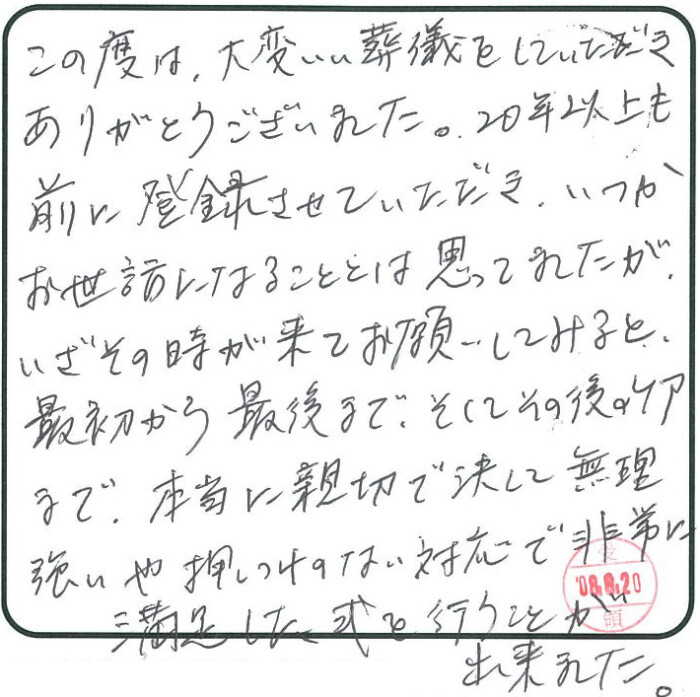 この度は、大変いい葬儀をしていただき
ありがとうございました。20年以上も
前に登録させていただき、いつか
お世話になることとは思ってましたが、
いざその時が来てお願いしてみると、
最初から最後まで、そしてその後のケア
まで、本当に親切で決して無理
強いや押しつけのない対応で非常に
満足した、式を行うことが
出来ました。
受
'08.8.20
領